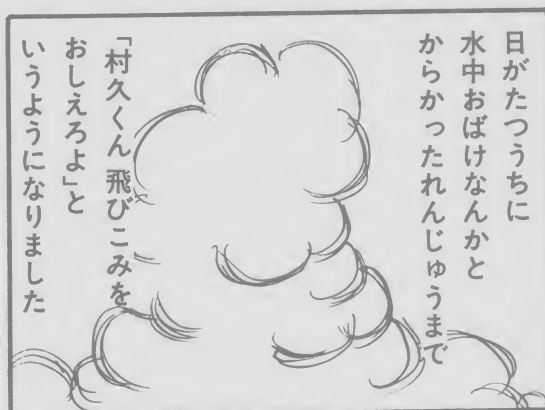 日がたつうちに
水中おばけなんかと
からかったれんじゅうまで
「村久くん 飛びこみを
おしえろよ」と
いうようになりました